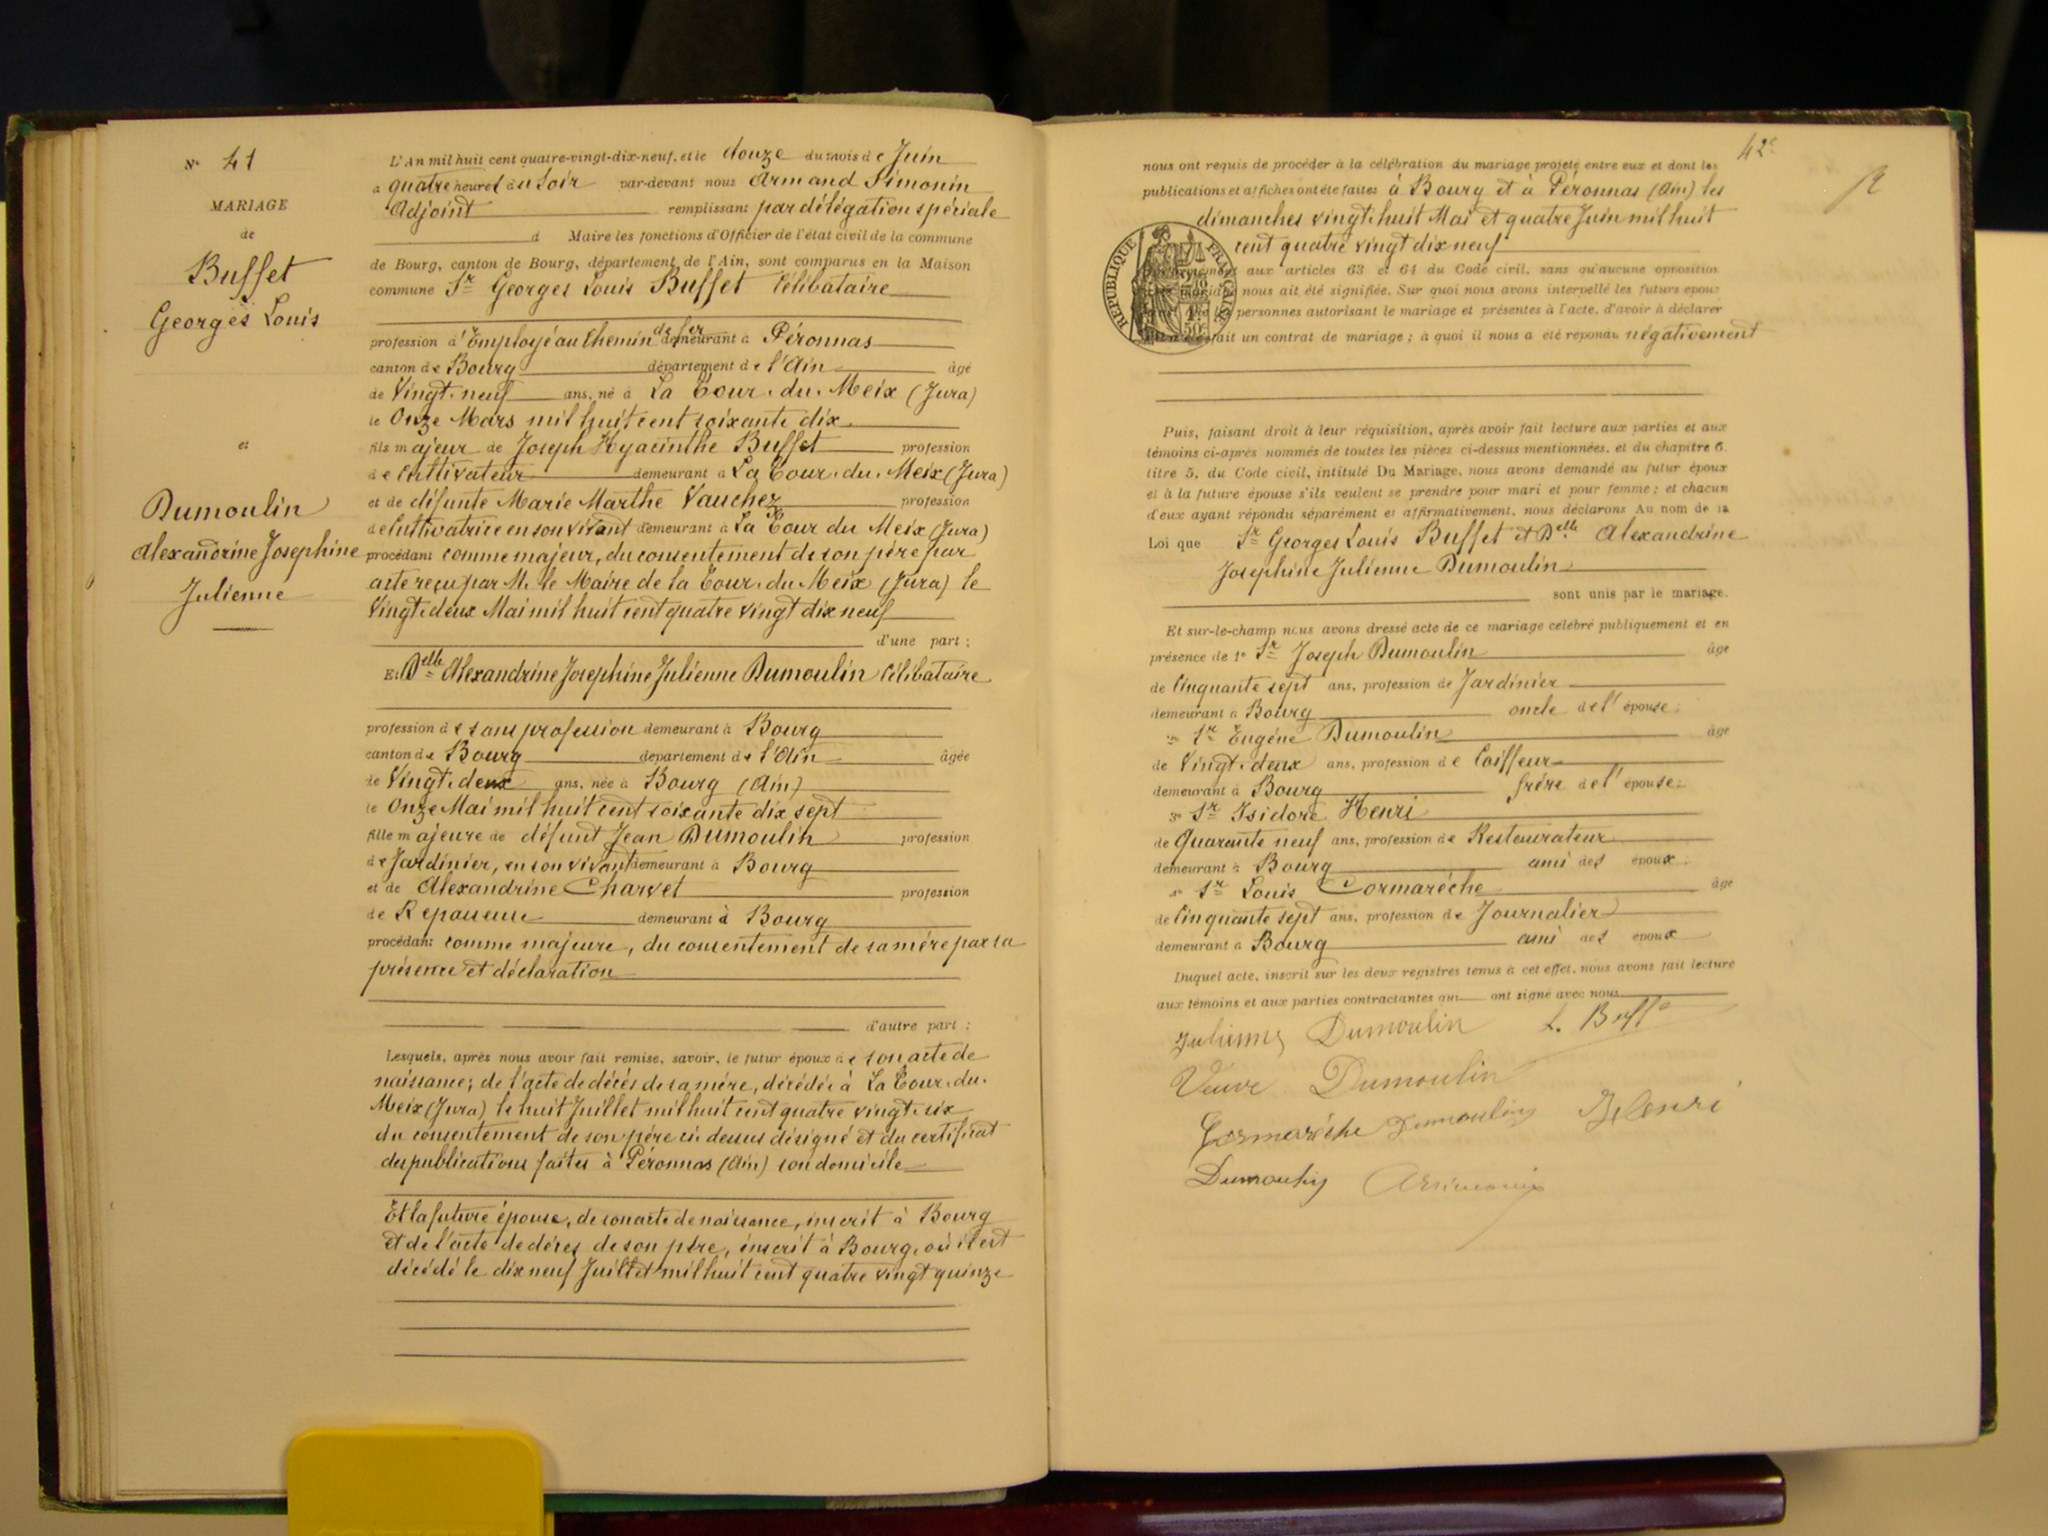 N° 41
MARIAGE
de
Buffet
Georges Louis
et
Dumoulin
Alexandrine Josephine
Julienne
L'An mil huit cent quatre-vingt-dix-neuf, et le douze du mois de Juin
a quatre heures du Soir par-devant nous Armand Simonin
Adjoint remplissant par délégation spéciale
d Maire les fonctions d'Officier de l'état civil de la commune
de Bourg, canton de Bourg, département de l'Ain, sont comparus en la Maison
commune Sr Georges Louis Buffet Célibataire
profession d'Employé au Chemin de fer demeurant à Péronnas
canton de Bourg département de l'Ain âgé
de Vingt-neuf ans, né à La Tour-du-Meix (Jura)
le Onze Mars mil huit cent soixante dix
fils majeur de Joseph Hyacinthe Buffet profession
de Cultivateur demeurant à La Tour-du-Meix (Jura)
et de défunte Marie Marthe Vauchez profession
de Cultivatrice en son vivant demeurant à La Tour du Meix (Jura)
procédant comme majeur, du consentement de son père par
acte reçu par M. le Maire de la Tour-du-Meix (Jura) le
Vingt-deux Mai mil huit cent quatre vingt dix neuf
d'une part ;
Et Delle Alexandrine Josephine Julienne Dumoulin Célibataire
profession de sans profession demeurant à Bourg
canton de Bourg departement de l'Ain âgée
de Vingt-deux ans, née à Bourg (Ain)
le Onze Mai mil huit cent soixante dix sept
fille majeure de défunt Jean Dumoulin profession
de Jardinier, en son vivant demeurant à Bourg
et de Alexandrine Charvet profession
de Repasseuse demeurant à Bourg
procédant comme majeure, du consentement de sa mère par sa
présence et déclaration
d'autre part ;
Lesquels, après nous avoir fait remise, savoir, le futur époux de son acte de
naissance; de l'acte de décès de sa mère, décédée à La Tour-du-
Meix (Jura) le huit Juillet mil huit cent quatre vingt-six
du consentement de son père ci-dessus désigné et du certificat
des publications faites à Péronnas (Ain) son domicile
Et la future épouse, de son acte de naissance, inscrit à Bourg
et de l'acte de décès de son père, inscrit à Bourg, où il est
décédé le dix neuf Juillet mil huit cent quatre vingt quinze
42e
nous ont requis de procéder à la célébration du mariage projeté entre eux et dont les
publications et affiches ont été faites à Bourg et à Péronnas (Ain) les
dimanches vingt-huit Mai et quatre Juin mil huit
cent quatre vingt dix neuf
RÉPUBLIQUE FRANÇAISE
aux articles 63 et 64 du Code civil, sans qu'aucune opposition
nous ait été signifiée. Sur quoi nous avons interpellé les futurs epoux
personnes autorisant le mariage et présentes à l'acte, d'avoir à déclarer
fait un contrat de mariage ; à quoi il nous a été répondu négativement
Puis, faisant droit à leur réquisition, après avoir fait lecture aux parties et aux
témoins ci-après nommés de toutes les pièces ci-dessus mentionnées, et du chapitre 6,
titre 5, du Code civil, intitulé Du Mariage, nous avons demandé au futur époux
et à la future épouse s'ils veulent se prendre pour mari et pour femme ; et chacun
d'eux ayant répondu séparément et affirmativement, nous déclarons Au nom de la
Loi que Sr Georges Louis Buffet et Delle Alexandrine
Josephine Julienne Dumoulin
sont unis par le mariage.
Et sur-le-champ nous avons dressé acte de ce mariage célébré publiquement et en
présence de 1° Sr Joseph Dumoulin âge
de Cinquante sept ans, profession de Jardinier
demeurant à Bourg oncle de l'épouse ;
2° Sr Eugéne Dumoulin âge
de Vingt-deux ans, profession de Coiffeur
demeurant à Bourg frère de l'épouse ;
3° Sr Isidore Henri
de Quarante neuf ans, profession de Restaurateur
demeurant à Bourg ami des époux ;
Sr Louis Cormaréche âge
de Cinquante sept ans, profession de Journalier
demeurant à Bourg ami des époux
Duquel acte, inscrit sur les deux registres tenus à cet effet, nous avons fait lecture
aux témoins et aux parties contractantes qui ont signé avec nous
Julienne Dumoulin L. Buffet
Veuve Dumoulin
Cormaréche Dumoulin Henri
Dumoulin A Simonin